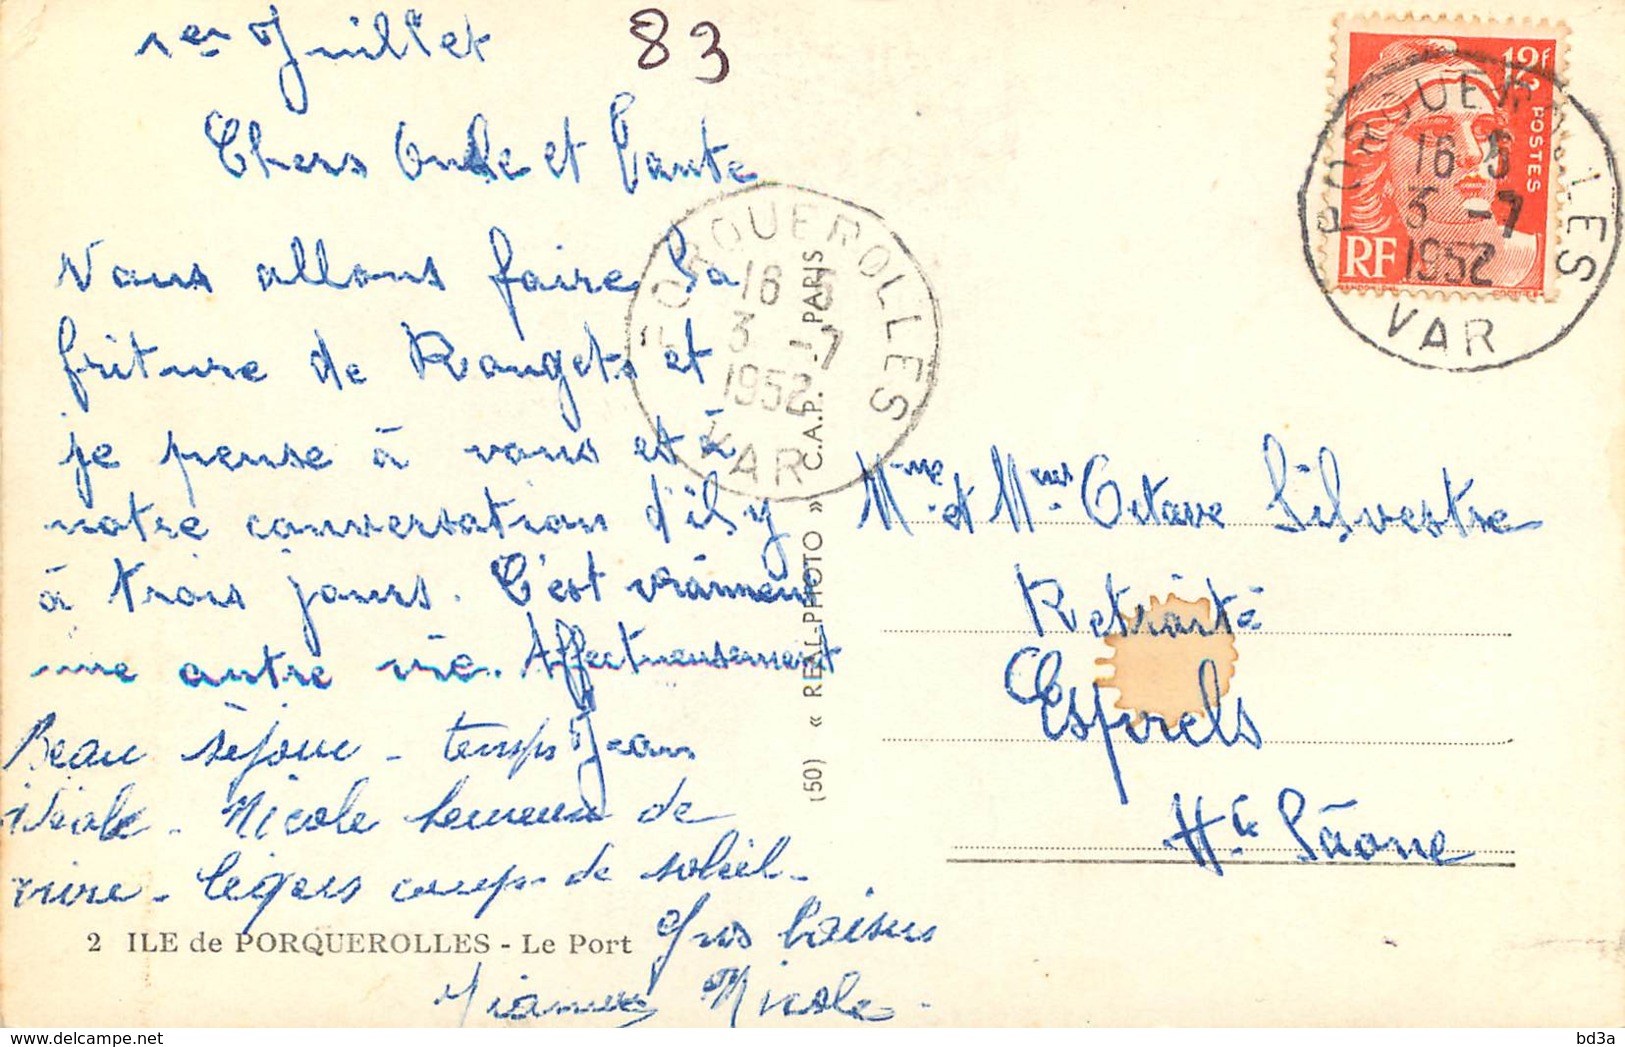 1er Juillet
83
Chers Oncle et Tante
Nous allons faire la
friture de Rougets et
je pense à vous et à
notre conversation d'il y
à trois jours. C'est vraiment
une autre vie. Affectueusement
Jean
Beau séjour - temps
idéal - Nicole heureuse de
vivre - légers coups de soleil -
Gros baisers
Nicole -
2 ILE de PORQUEROLLES - Le Port
(50) « REAL-PHOTO » C.A.P. - PARIS
PORQUEROLLES
16 - 5
3 - 7
1952
VAR
12F
POSTES
RF
PORQUEROLLES
16 - 5
3 - 7
1952
VAR
Mme et Mr Octave Silvestre
Retraité
Esprels
Hte Saône
bd3a